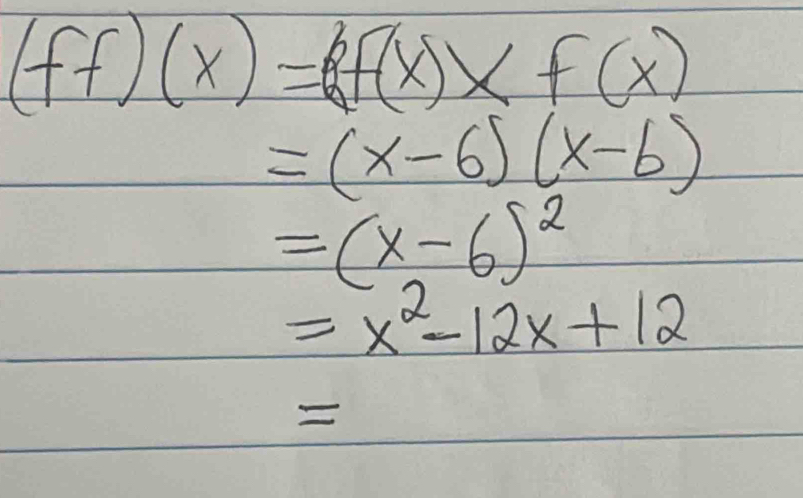 (ff)(x) = f(x) × f(x)
= (x-6)(x-6)
= (x-6)²
= x²-12x+12
=